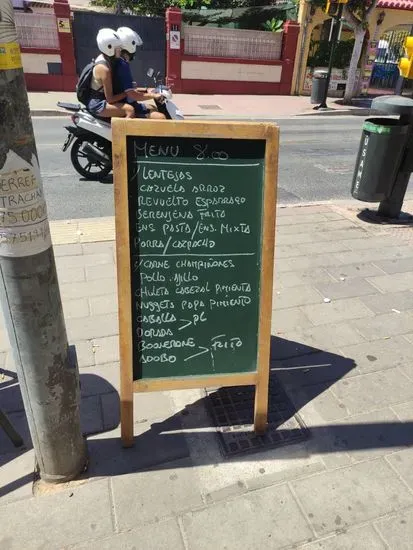 MENU 8'00
1/ LENTEJAS
CAZUELA ARROZ
REVUELTO ESPARRAGO
BERENJENA FRITA
ENS PASTA/ENS. MIXTA
PORRA/GAZPACHO
2/ CARNE CHAMPIÑONES
POLLO AJILLO
CHULETA CABEZAL PIMIENTA
NUGGETS PAPA PIMIENTO
CABALLA > PL
DORADA
BOQUERONE > FRITO
ADOBO
TRACHA
75000
USAME